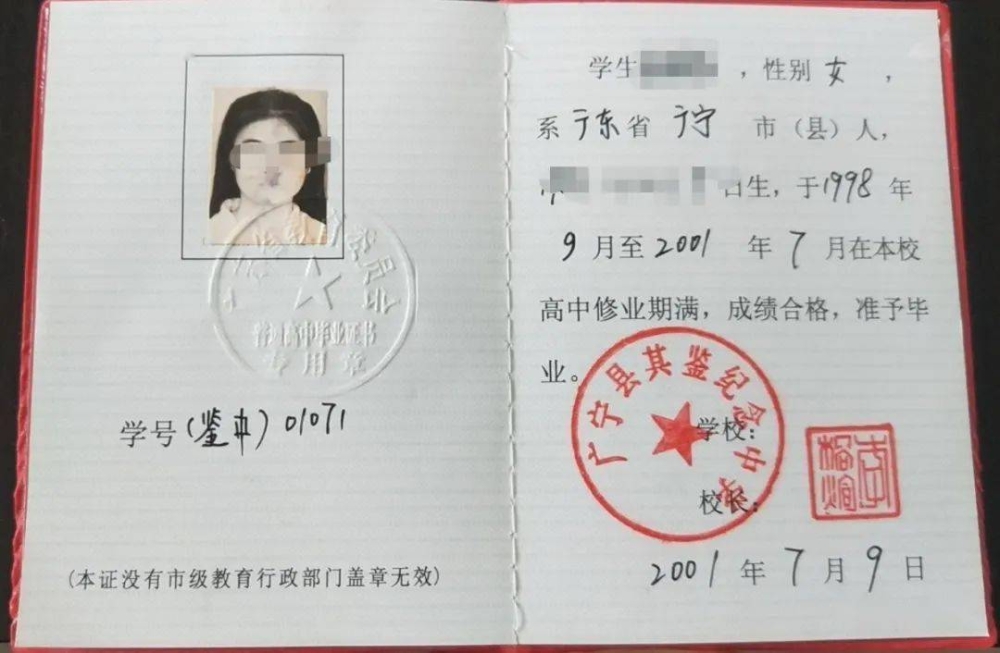 普通高中毕业证书
专用章
学号(鉴中)01071
(本证没有市级教育行政部门盖章无效)
学生 ,性别女,
系广东省广宁市(县)人,
日生,于1998年
9月至2001年7月在本校
高中修业期满,成绩合格,准予毕
业。
广宁县其鉴纪念中学
学校:
校长:
2001年7月9日